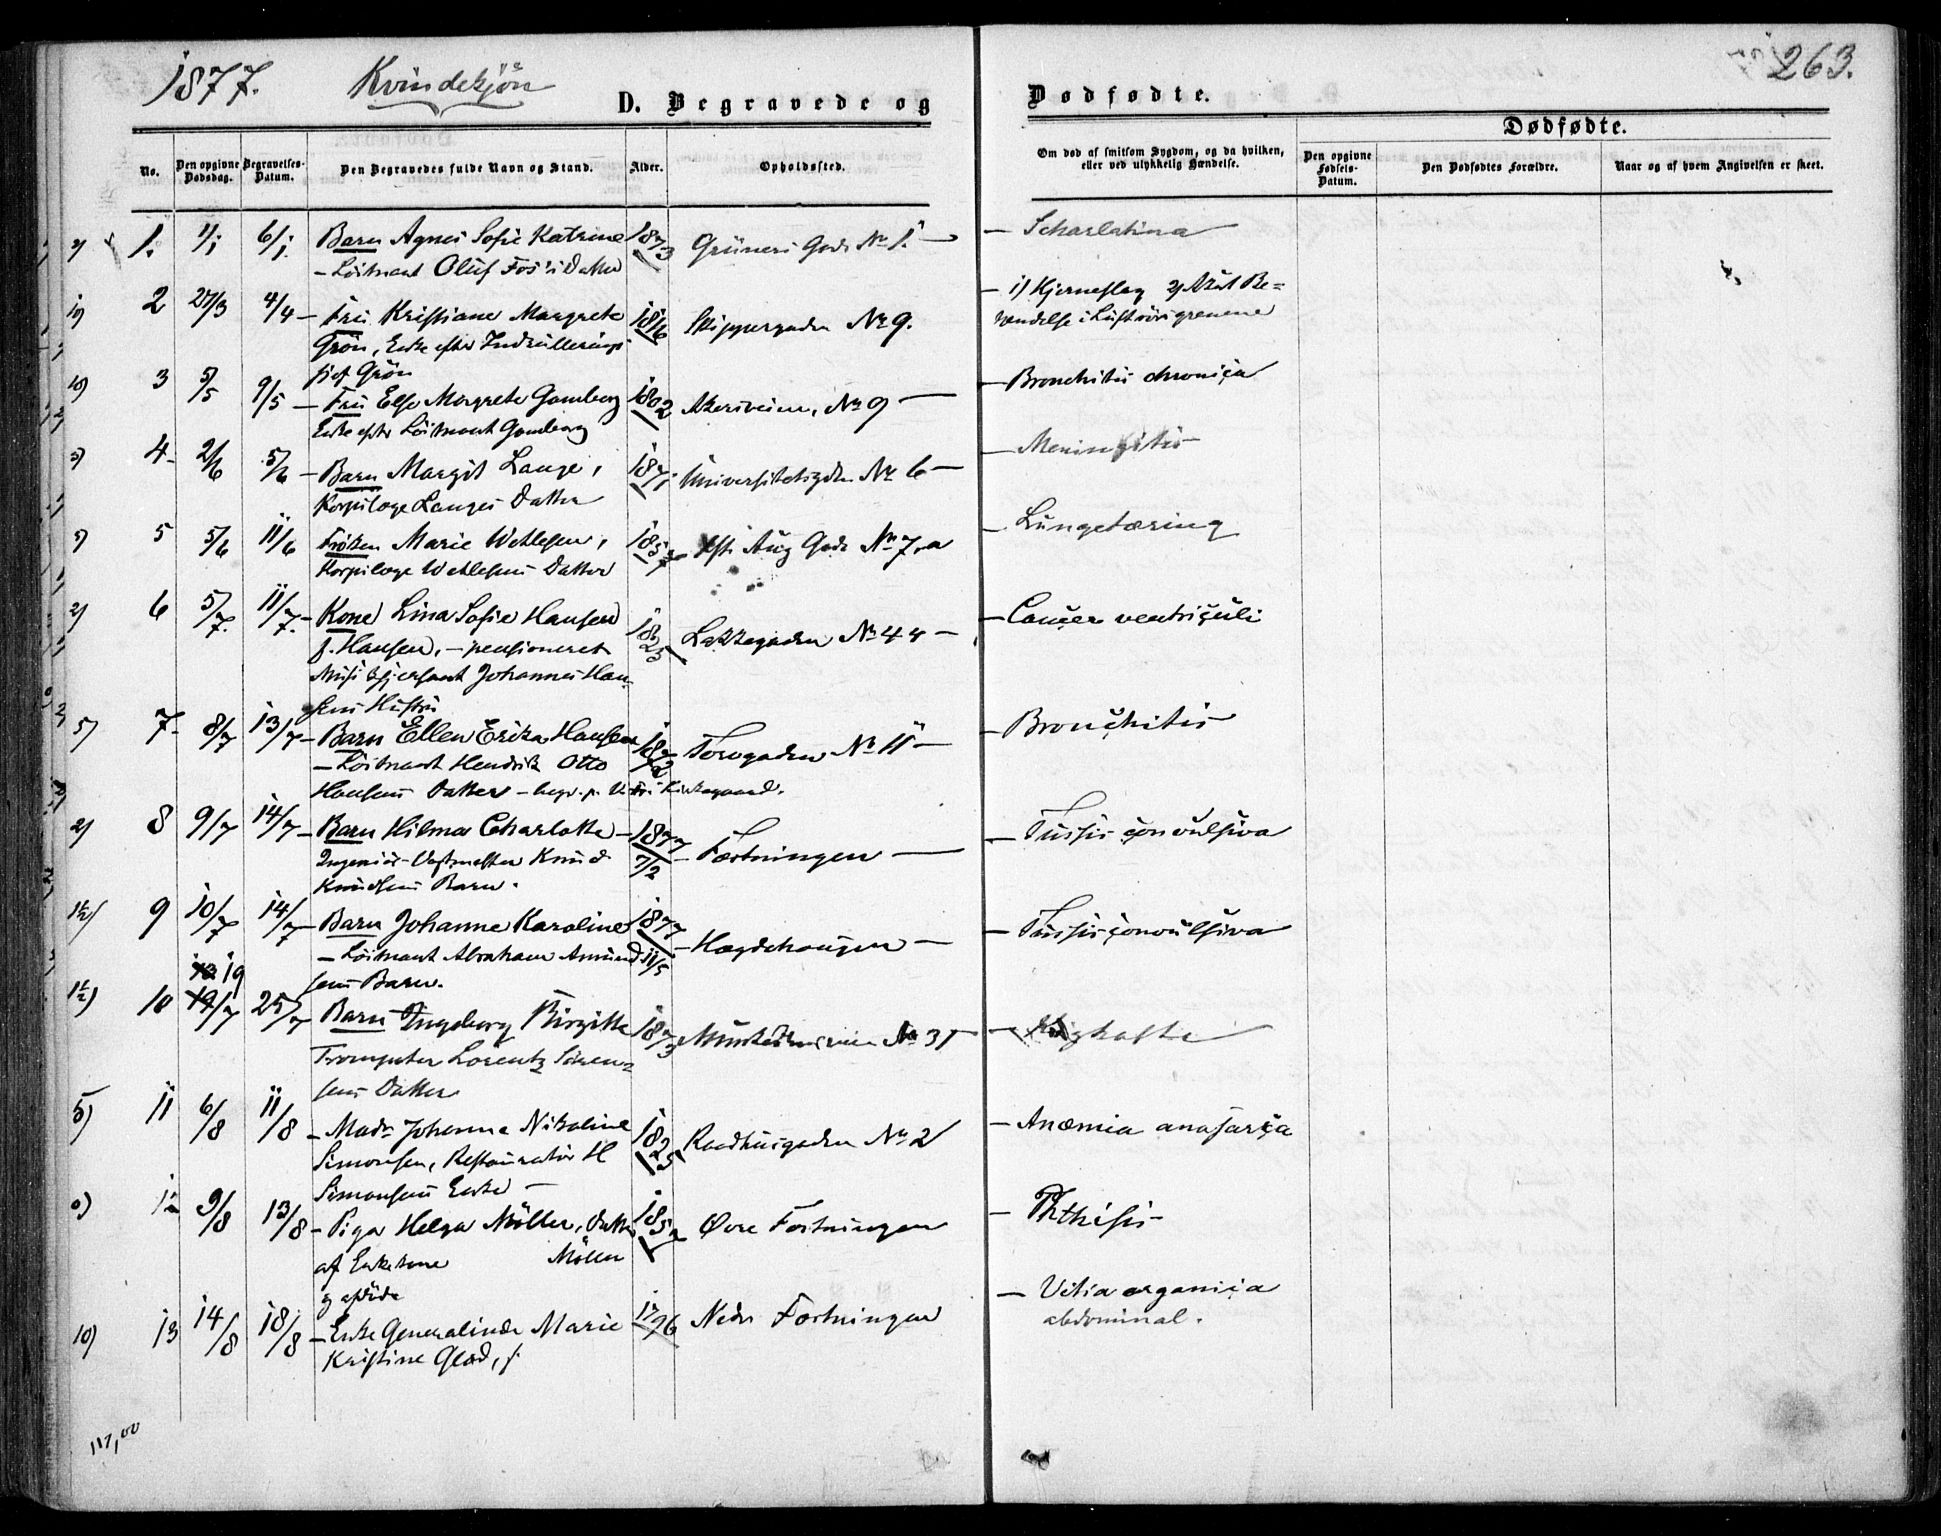 1877. Kvindekjön
D. Begravede og Dødfødte.
263.
Dødfødte.
No.
Den opgivne Dødsdag.
Begravelses-Datum.
Den Begravedes fulde Navn og Stand.
Alder.
Opholdssted.
Om død af smitsom Sygdom, og da hvilken, eller ved ulykkelig Hændelse.
Den opgivne Fødsels-Datum.
Den Dødfødtes Forældre.
Naar og af hvem Angivelsen er skeet.
1. 4/1 6/1 Barn Agnes Sofie Katrine 1873 Grüners Gade No 1. — Scharlatina
– Löitnant Oluf Foss's Datter
2 27/3 4/4 – Fru Kristiane Margrete 1816 Skippergaden No 9. – 1) Hjerneslag 2) Akut Be=
Grön, Enke efter Indrulleringss tændelse i Luftrörsgrenene
sjef Grön
3 5/5 9/5 – Fru Else Margrete Gamborg 1802 Akersveien, No 9 — Bronchitis chronica
Enke efter Löitnant Gamborg
4 2/6 5/6 – Barn Margit Lange, 1871 Universitetsgden No 6 — Meningitis
Korpslæge Langes Datter
5 5/6 11/6 Fröken Marie Wetlesen, 1857 Aug Gade No 7.a — Lungetæring
Korpslæge Wetlesens Datter
6 5/7. 11/7. – Kone Lina Sofie Hansen 1825 Lakkegaden No 44 — Cancer ventriculi
f. Hansen, – pensioneret
Musiksjersant Johannes Han-
sens Hustru
7 8/7 13/7 – Barn Ellen Erika Hansen 1872 – Torvgaden No 11 — Bronchitis
– Löitnant Hendrik Otto
Hansens Datter – begr. p. Vestre Kirkegaard.
8 9/7 14/7 – Barn Hilma Charlotte – 1877 7/2 – Fæstningen — Tussis convulsiva
Ingeniör-Vagtmester Knud
Knudsens Barn.
9 10/7 14/7 – Barn Johanne Karoline 1877 11/5 – Hægdehaugen — Tussis convulsiva
– Löitnant Abraham Amund
sens Barn.
10 19/7 25/7 Barn Ingeborg Birgitte 1873 No 31 — Kighoste
Trompeter Lorentz Sören=
sens Datter
11 6/8 11/8 – Madm Johanne Nikoline 1825 Raadhusgaden No 2 – Anæmia anasarca
Simonsen, Restauratör H
Simonsens Enke –
12 9/8 13/8 – Pige Helga Möller, Datter 1852 Øvre Fæstningen – Phthisis
af Enkekone Möller
13 14/8 18/8 – Enke Generalinde Marie 1796 Nedre Fæstningen – Vitia organica
Kristine Glad, f. abdominal.
117,00